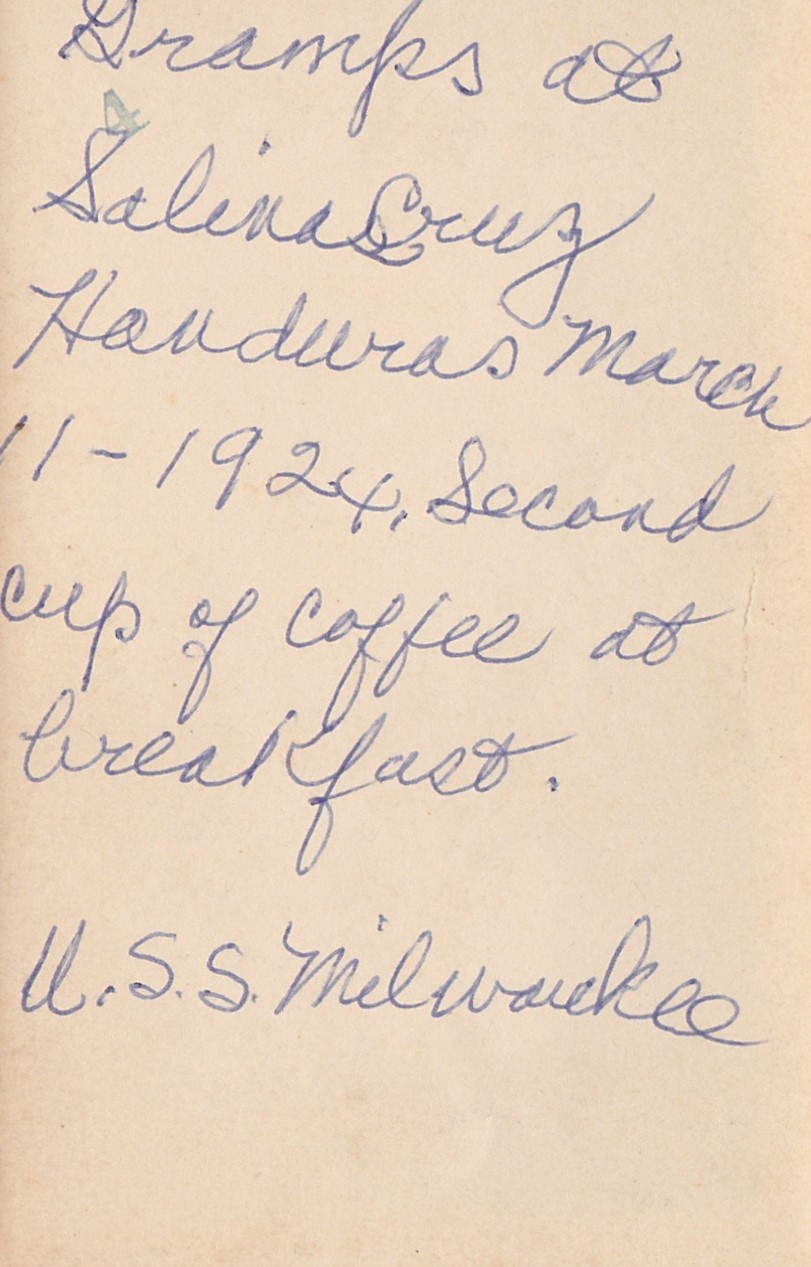 Gramps at
Salina Cruz
Honduras March
11-1924. Second
cup of coffee at
breakfast.
U.S.S. Milwaukee